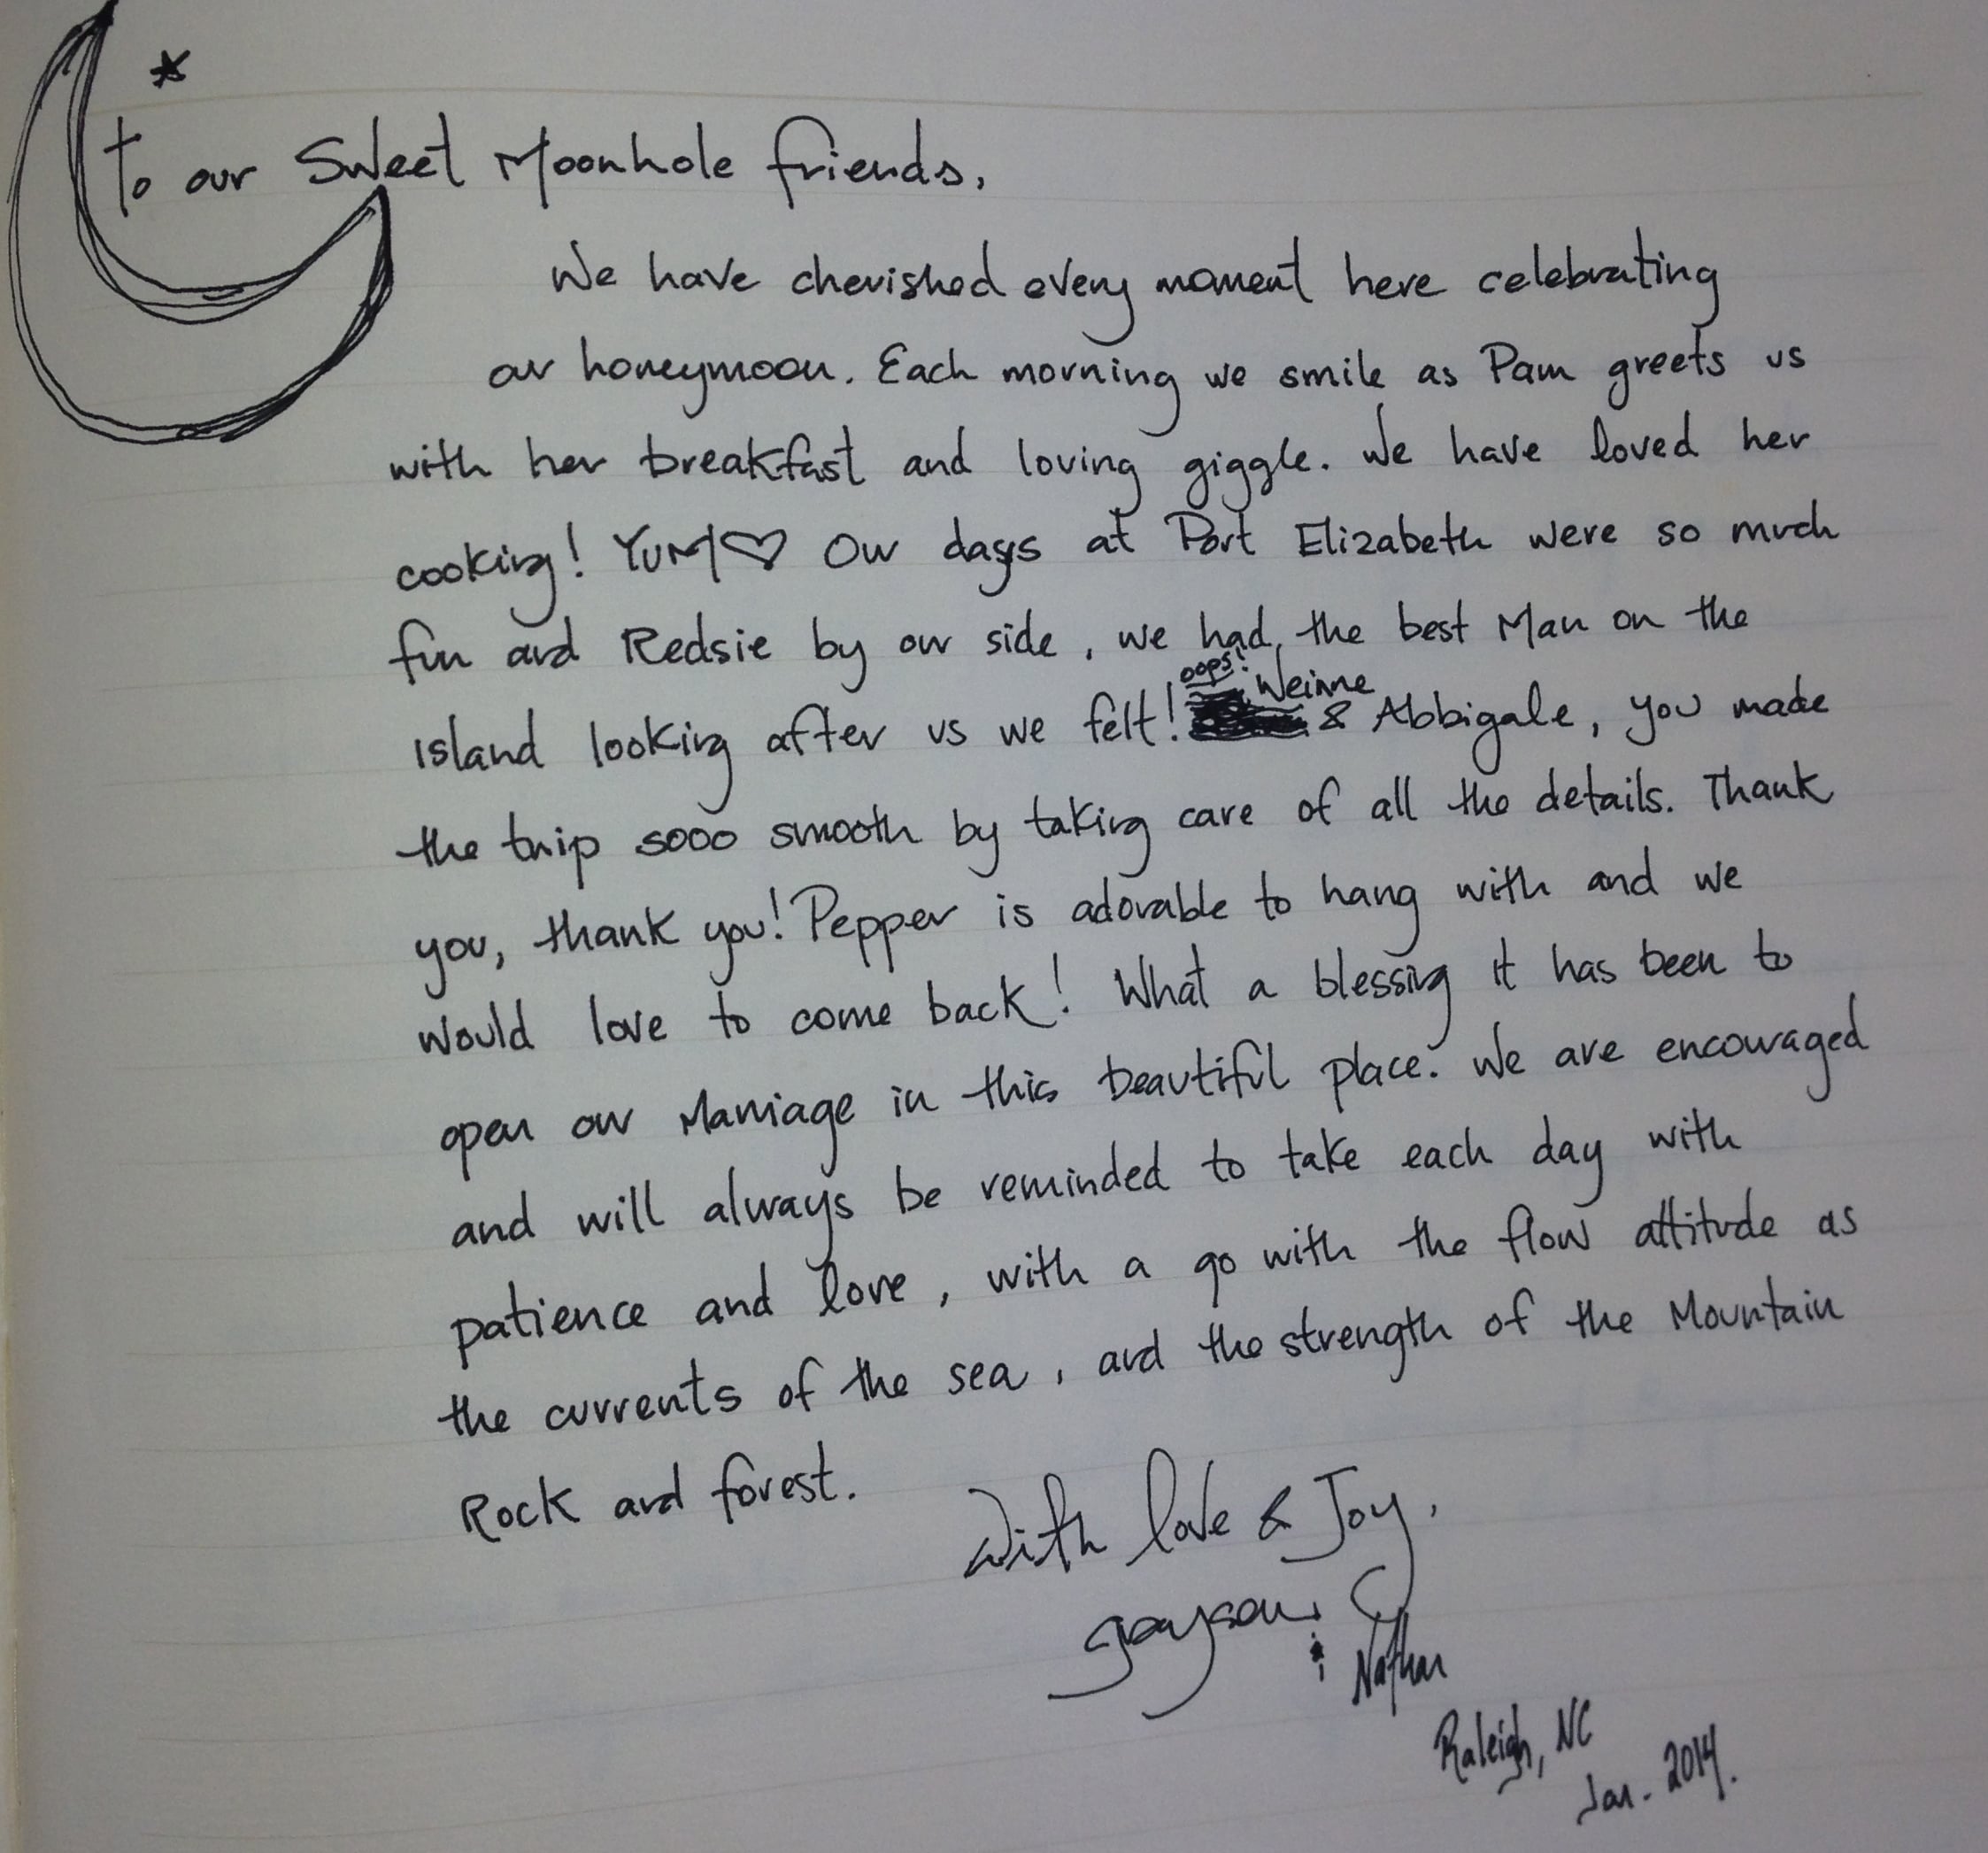 To our Sweet Moonhole friends,
We have cherished every moment here celebrating
our honeymoon. Each morning we smile as Pam greets us
with her breakfast and loving giggle. We have loved her
cooking! YUM♡ Our days at Port Elizabeth were so much
fun and Redsie by our side, we had the best Man on the
oops! Weinne
Island looking after us we felt! & Abbigale, you made
the trip sooo smooth by taking care of all the details. Thank
you, thank you! Pepper is adorable to hang with and we
would love to come back! What a blessing it has been to
open our Marriage in this beautiful place. We are encouraged
and will always be reminded to take each day with
patience and love, with a go with the flow attitude as
the currents of the sea, and the strength of the Mountain
Rock and forest.
With love & Joy,
grayson
& Nathan
Raleigh, NC
Jan. 2014.